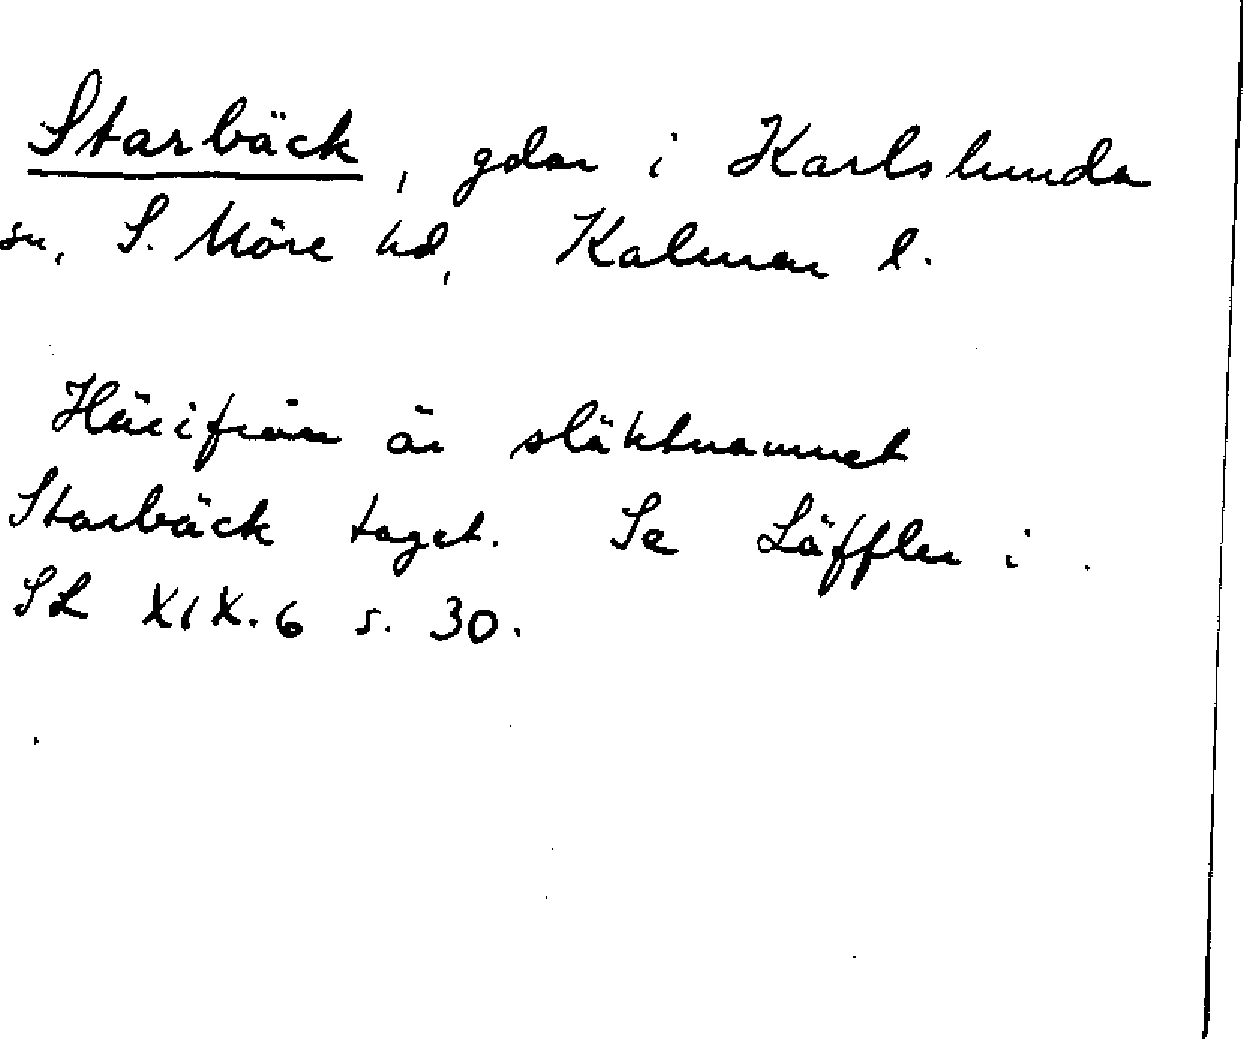 Starbäck, gdar i Karlslunda
sn, S. Möre hd, Kalmar l.
Härifrån är släktnamnet
Starbäck taget. Se Läffler i
SL XIX.6 s. 30.